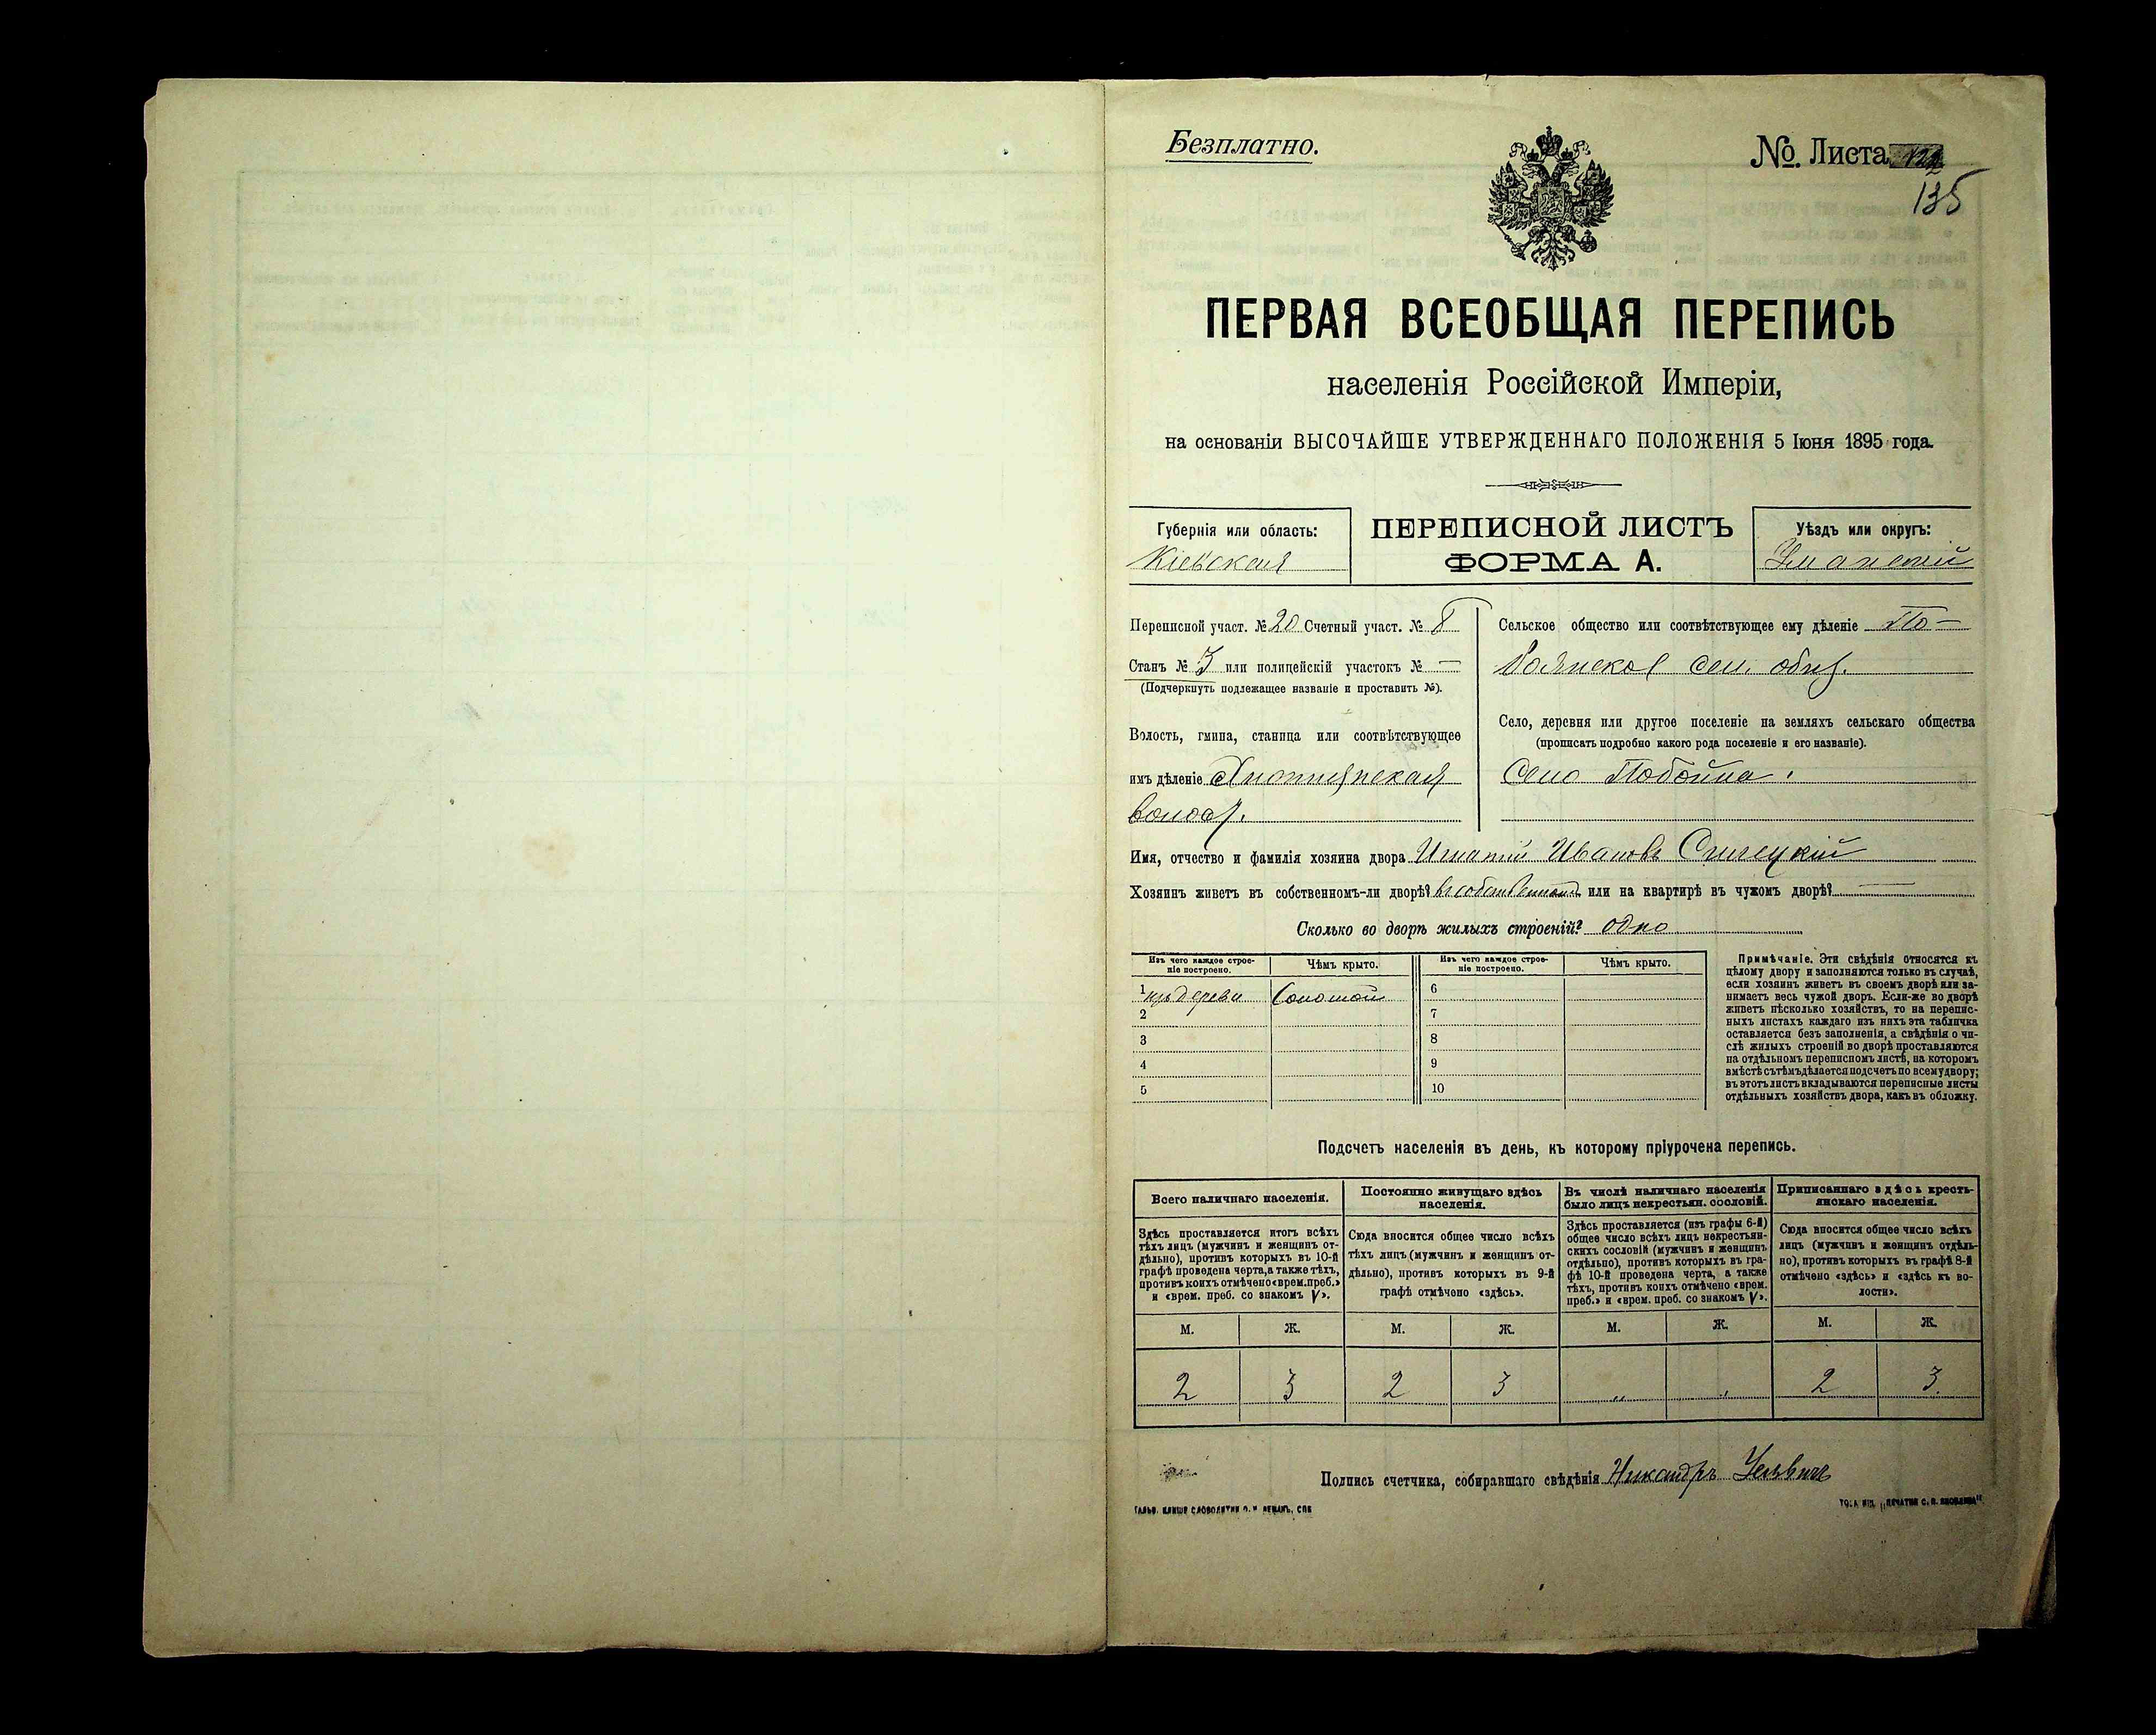 Безплатно.
№ Листа
135
ПЕРВАЯ ВСЕОБЩАЯ ПЕРЕПИСЬ
населенія Россійской Имперіи,
на основаніи ВЫСОЧАЙШЕ УТВЕРЖДЕННАГО ПОЛОЖЕНІЯ 5 Іюня 1895 года.
Губернія или область:
Кіевская
ПЕРЕПИСНОЙ ЛИСТЪ
ФОРМА А.
Уѣздъ или округъ:
Уманскій
Переписной участ. № 20 Счетный участ. № 8
Станъ № 3 или полицейскій участокъ № —
(Подчеркнуть подлежащее названіе и проставить №).
Волость, гмина, станица или соотвѣтствующее
имъ дѣленіе
волос.
Сельское общество или соотвѣтствующее ему дѣленіе По-
сел. общ.
Село, деревня или другое поселеніе на земляхъ сельскаго общества
(прописать подробно какого рода поселеніе и его названіе).
Село Побойна.
Имя, отчество и фамилія хозяина двора Игнатій Ивановъ
Хозяинъ живетъ въ собственномъ-ли дворѣ? въ собственномъ или на квартирѣ въ чужомъ дворѣ? —
Сколько во дворѣ жилыхъ строеній? одно
Изъ чего каждое строе-
ніе построено.
Чѣмъ крыто.
Изъ чего каждое строе-
ніе построено.
Чѣмъ крыто.
1 изъ дерева Соломой
2
3
4
5
6
7
8
9
10
Примѣчаніе. Эти свѣдѣнія относятся къ
цѣлому двору и заполняются только въ случаѣ,
если хозяинъ живетъ въ своемъ дворѣ или за-
нимаетъ весь чужой дворъ. Если-же во дворѣ
живетъ нѣсколько хозяйствъ, то на перепис-
ныхъ листахъ каждаго изъ нихъ эта табличка
оставляется безъ заполненія, а свѣдѣнія о чи-
слѣ жилыхъ строеній во дворѣ проставляются
на отдѣльномъ переписномъ листѣ, на которомъ
вмѣстѣ съ тѣмъ дѣлается подсчетъ по всему двору;
въ этотъ листъ вкладываются переписные листы
отдѣльныхъ хозяйствъ двора, какъ въ обложку.
Подсчетъ населенія въ день, къ которому пріурочена перепись.
Всего наличнаго населенія.
Здѣсь проставляется итогъ всѣхъ
тѣхъ лицъ (мужчинъ и женщинъ от-
дѣльно), противъ которыхъ въ 10-й
графѣ проведена черта, а также тѣхъ,
противъ коихъ отмѣчено «врем. преб.»
и «врем. преб. со знакомъ V».
Постоянно живущаго здѣсь
населенія.
Сюда вносится общее число всѣхъ
тѣхъ лицъ (мужчинъ и женщинъ от-
дѣльно), противъ которыхъ въ 9-й
графѣ отмѣчено «здѣсь».
Въ числѣ наличнаго населенія
было лицъ некрестьян. сословій.
Здѣсь проставляется (изъ графы 6-й)
общее число всѣхъ лицъ некрестьян-
скихъ сословій (мужчинъ и женщинъ
отдѣльно), противъ которыхъ въ гра-
фѣ 10-й проведена черта, а также
тѣхъ, противъ коихъ отмѣчено «врем.
преб.» и «врем. преб. со знакомъ V».
Приписаннаго здѣсь кресть-
янскаго населенія.
Сюда вносится общее число всѣхъ
лицъ (мужчинъ и женщинъ отдѣль-
но), противъ которыхъ въ графѣ 8-й
отмѣчено «здѣсь» и «здѣсь къ во-
лости».
М. Ж. М. Ж. М. Ж. М. Ж.
2 3 2 3 „ „ 2 3
Подпись счетчика, собиравшаго свѣдѣнія Никандръ